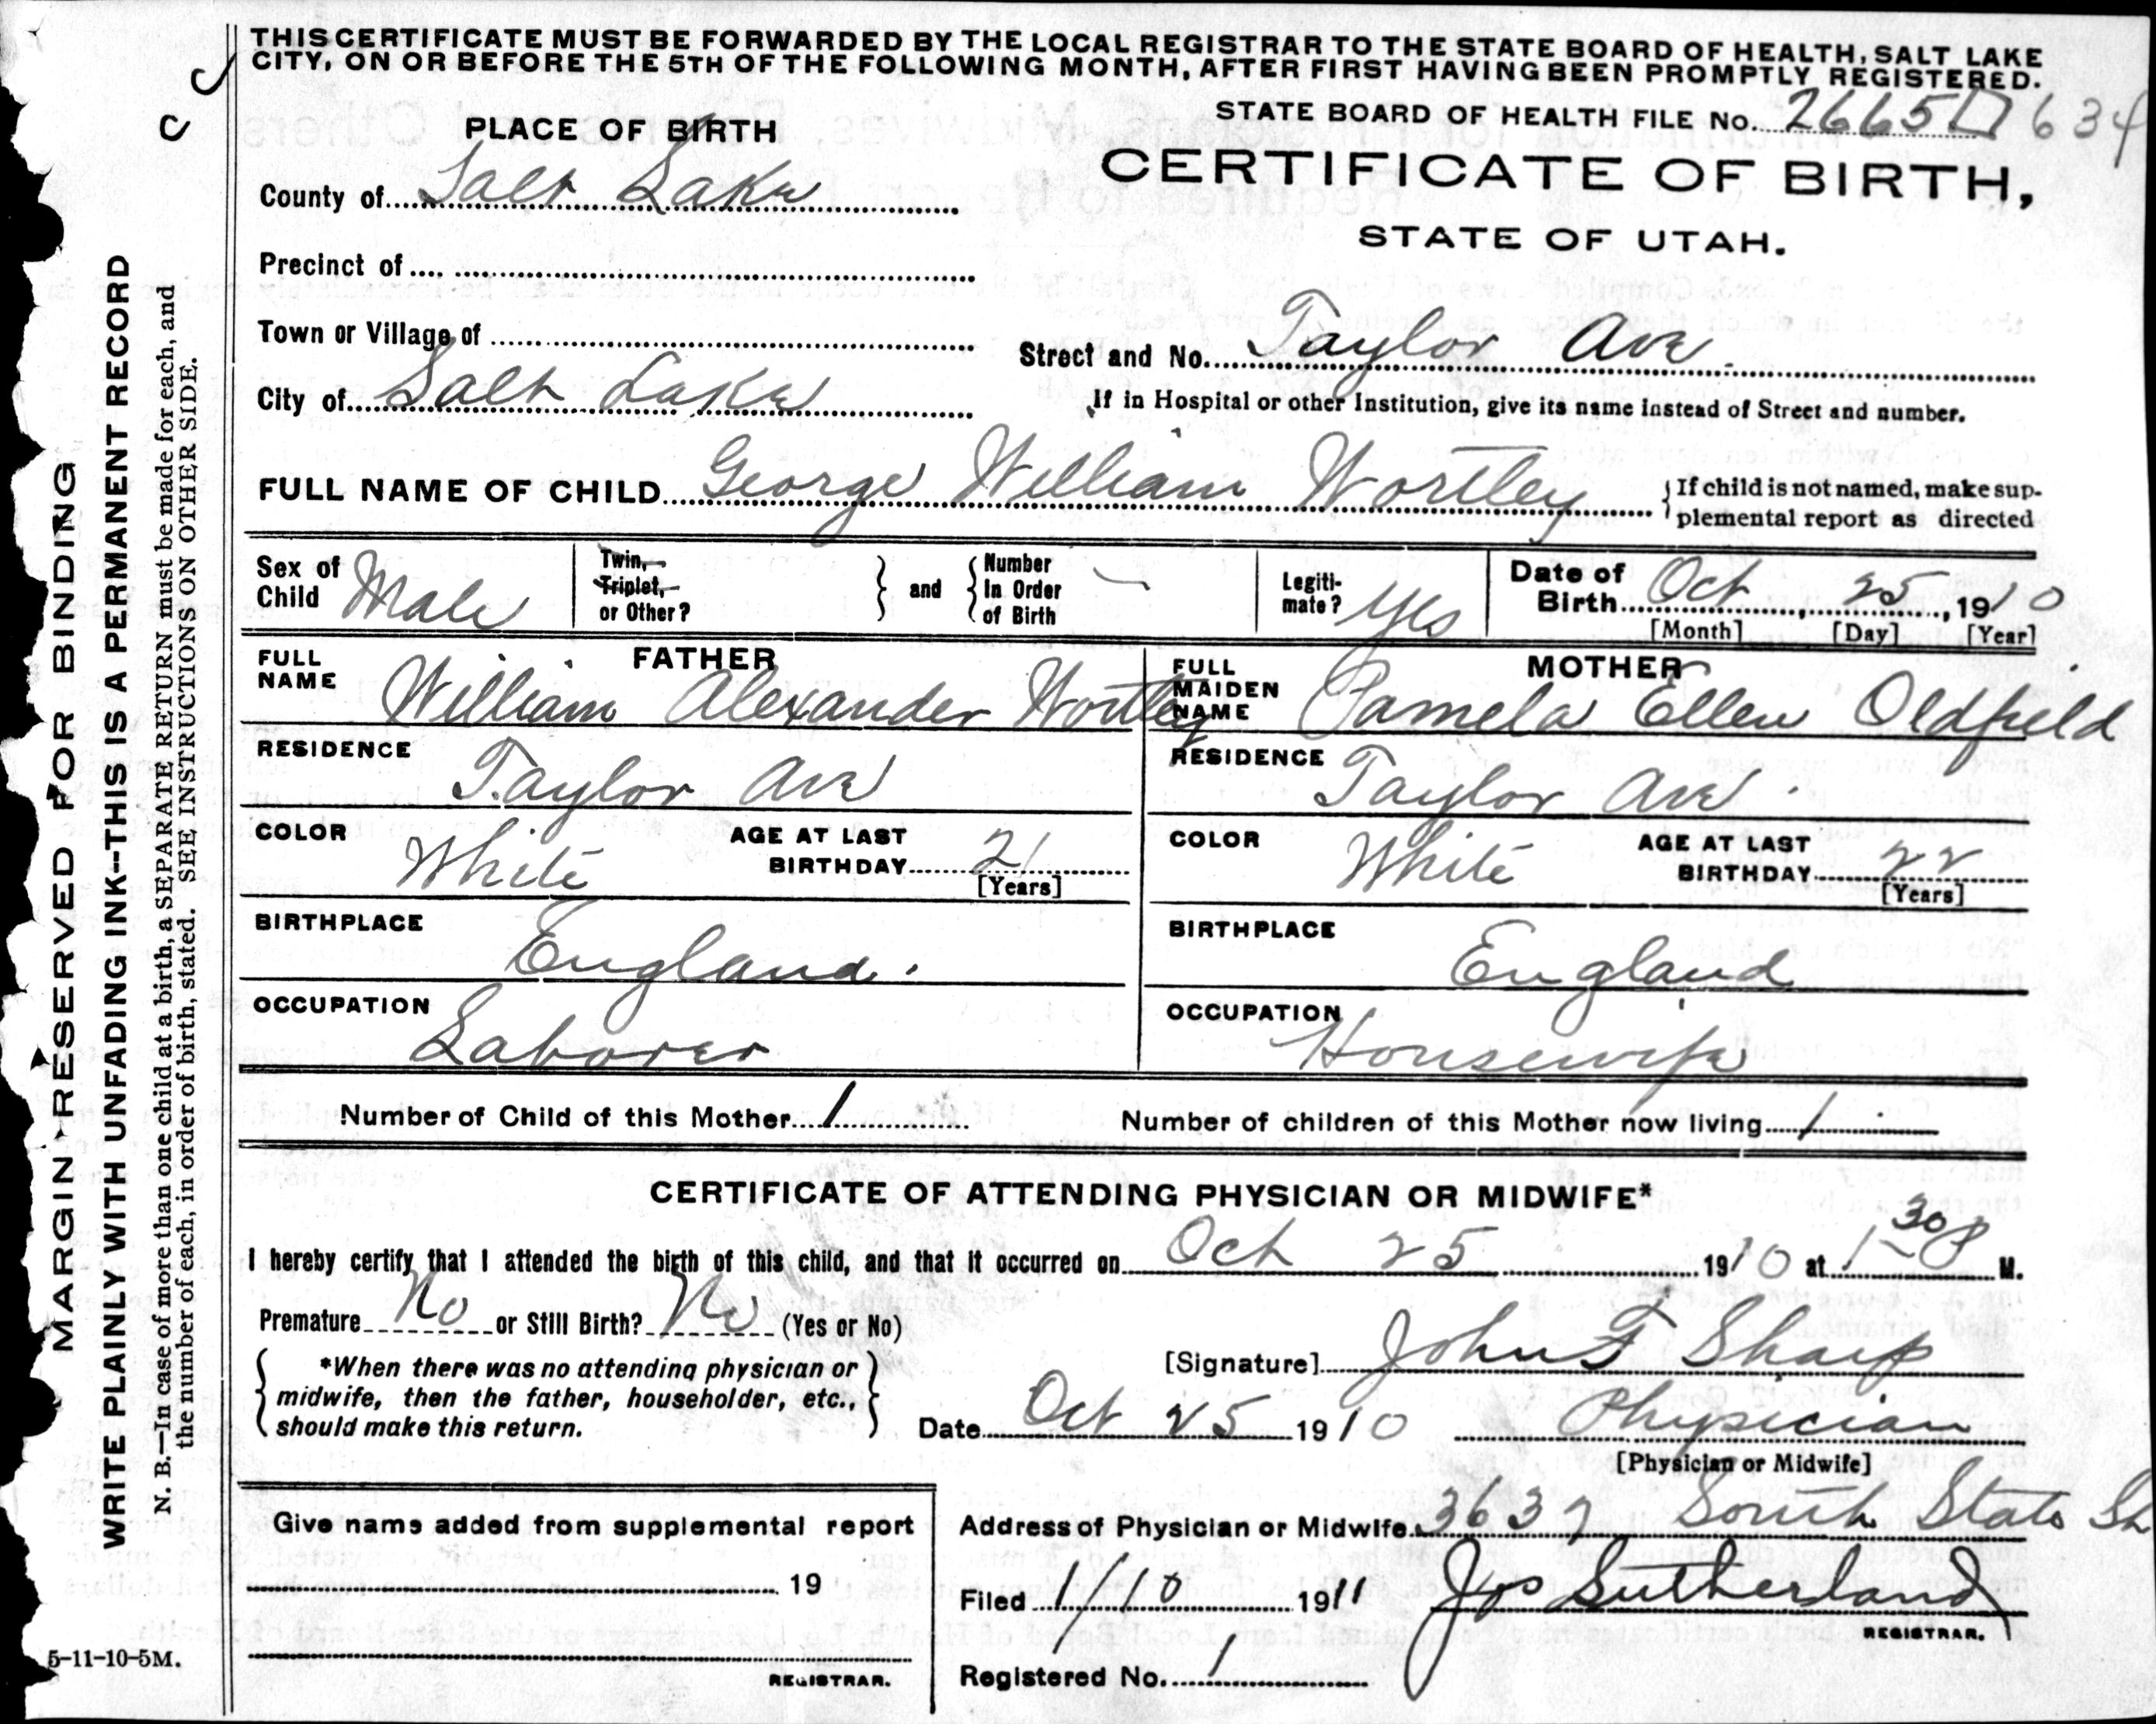 THIS CERTIFICATE MUST BE FORWARDED BY THE LOCAL REGISTRAR TO THE STATE BOARD OF HEALTH, SALT LAKE
CITY, ON OR BEFORE THE 5TH OF THE FOLLOWING MONTH, AFTER FIRST HAVING BEEN PROMPTLY REGISTERED.
STATE BOARD OF HEALTH FILE No. 2665 634
PLACE OF BIRTH
CERTIFICATE OF BIRTH,
STATE OF UTAH.
County of Salt Lake
Precinct of
Town or Village of
Street and No. Taylor Ave.
City of Salt Lake
If in Hospital or other Institution, give its name instead of Street and number.
FULL NAME OF CHILD George William Wortley
If child is not named, make sup-
plemental report as directed
Sex of Child Male
Twin, Triplet, or Other?
and
Number In Order of Birth
Legiti-mate? Yes
Date of Birth Oct, 25, 1910
[Month] [Day] [Year]
FATHER
FULL NAME William Alexander Wortley
RESIDENCE Taylor Ave
COLOR White AGE AT LAST BIRTHDAY 21
[Years]
BIRTHPLACE England.
OCCUPATION Laborer
MOTHER
FULL MAIDEN NAME Pamela Ellen Oldfield
RESIDENCE Taylor Ave.
COLOR White AGE AT LAST BIRTHDAY 22
[Years]
BIRTHPLACE England
OCCUPATION Housewife
Number of Child of this Mother 1 Number of children of this Mother now living 1
CERTIFICATE OF ATTENDING PHYSICIAN OR MIDWIFE*
I hereby certify that I attended the birth of this child, and that it occurred on Oct 25 1910 at 1 30 P M.
Premature No or Still Birth? No (Yes or No)
*When there was no attending physician or
midwife, then the father, householder, etc.,
should make this return.
[Signature] John F Sharp
Date Oct 25 1910 Physician
[Physician or Midwife]
Give name added from supplemental report
19
REGISTRAR.
Address of Physician or Midwife 3637 South State St
Filed 1/10 1911 Jos Sutherland
REGISTRAR.
Registered No. 1
MARGIN RESERVED FOR BINDING
WRITE PLAINLY WITH UNFADING INK--THIS IS A PERMANENT RECORD
N. B.—In case of more than one child at a birth, a SEPARATE RETURN must be made for each, and
the number of each, in order of birth, stated. SEE INSTRUCTIONS ON OTHER SIDE.
5-11-10-5M.